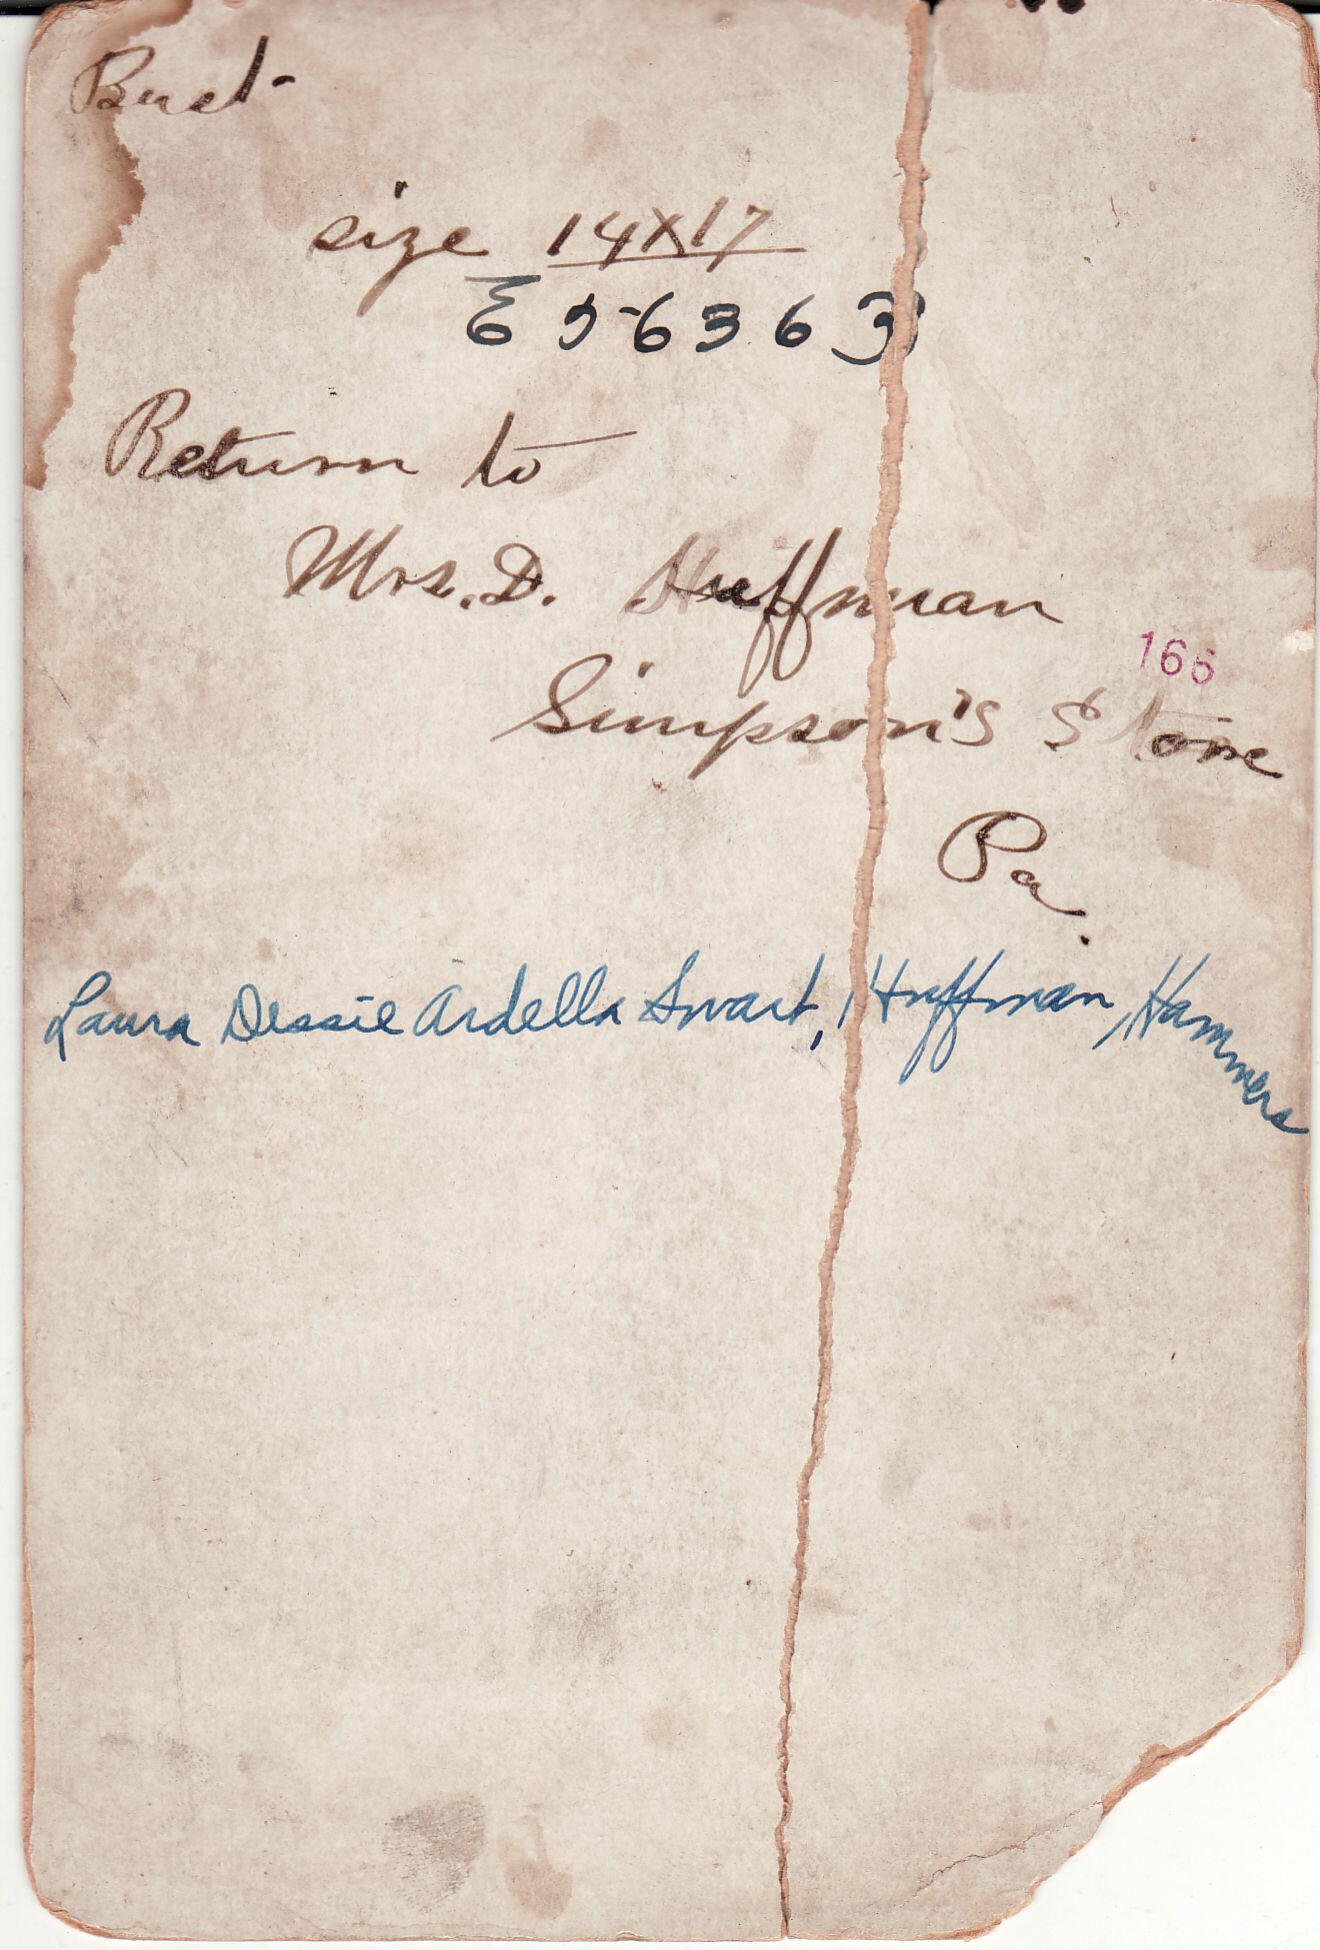 Bust-
size 14X17
E 5-6363
Return to
Mrs. D. Huffman
166
Simpson's Store
Pa.
Laura Dessie Ardella Swart, Huffman, Hammers